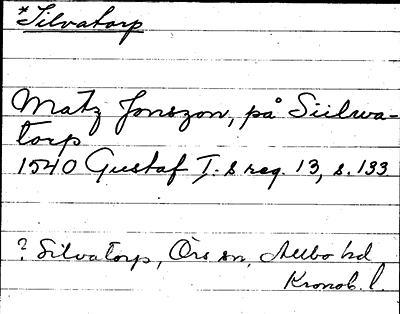 *Silvatorp
Matz Jonszon, på Siilwa-
torp
1540 Gustaf I.s reg. 13, s. 133
? Silvatorp, Örs sn, Allbo hd
Kronob. l.